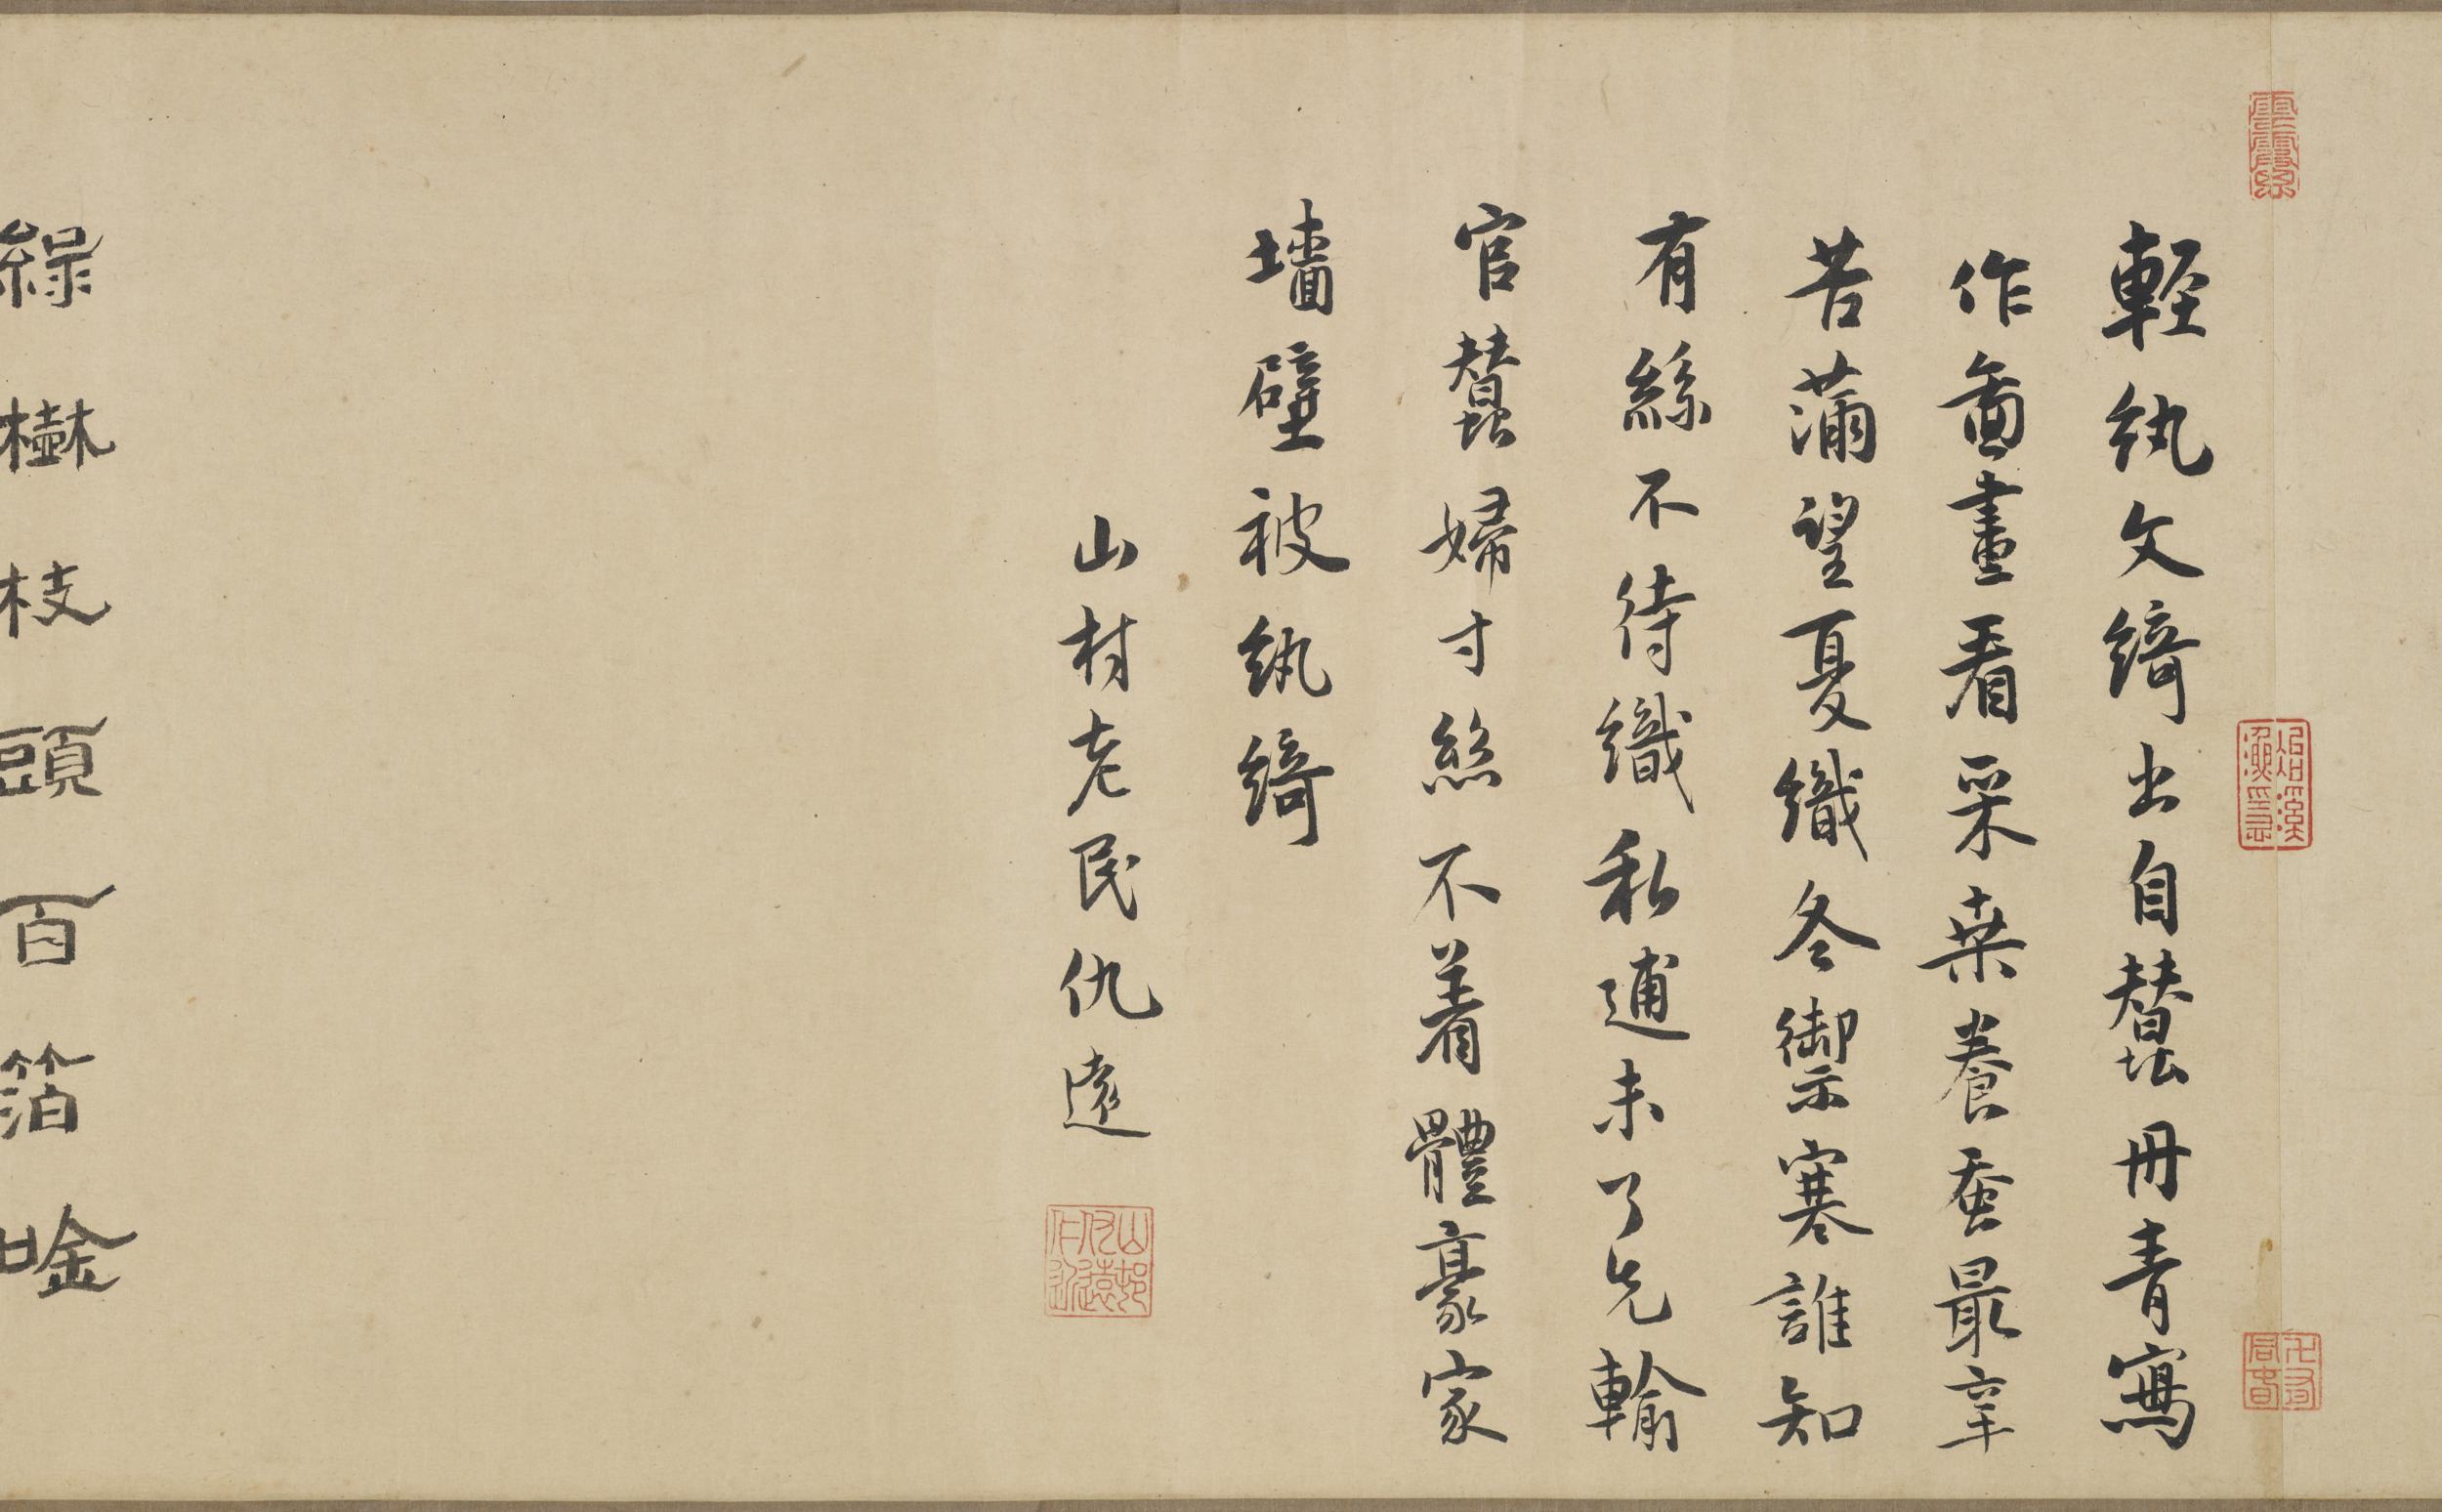 輕紈文綺出自蠶丹青寫
作啚畫看采桒養蚕最辛
苦蒲望夏織冬禦寒誰知
有絲不待織私逋未了先輸
官蠶婦寸絲不着體豪家
墻壁被紈綺
山村老民仇遠
綠樹枝頭百箔唫